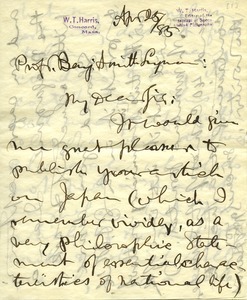 W. T. Harris,
Concord,
Mass.
Apr 25
/85
W. T. Harris,
Prof. Benj Smith Lyman:
My Dear Sir:
It would give
me great pleasure to
publish your article
on Japan (which I
remember vividly, as a
very philosophic state-
ment of essential charac-
teristics of national life)